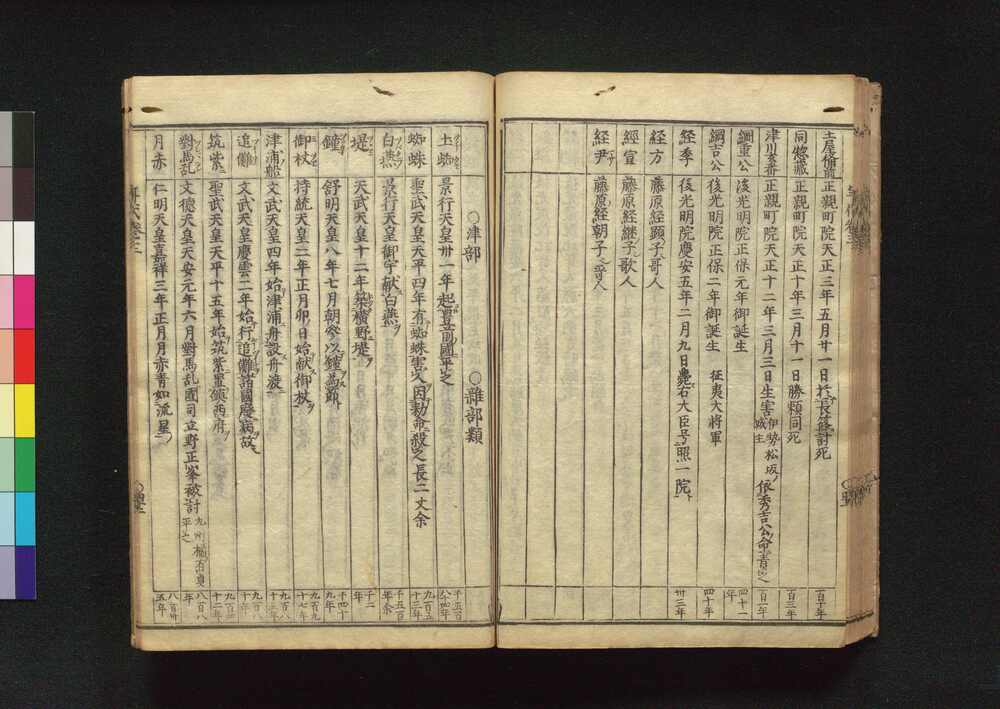 土屋備前 正親町院天正三年五月廿一日於長篠討死 百十年
同惣蔵 正親町院天正十年三月十一日勝頼同死 百三年
津川玄蕃 正親町院天正十二年三月三日生害 伊勢松坂城主 依秀吉公命 百一年
綱重公 後光明院正保元年御誕生 四十一年
綱吉公 後光明院正保二年御誕生 征夷大将軍 四十年
経季 後光明院慶安五年二月九日薨右大臣号照一院 卅三年
経方 藤原経顕子哥人
経宣 藤原経継子歌人
経尹 藤原経朝子哥人
○津部 ○雑部類
土蜘 景行天皇卅一年起豊前國平之
蜘蛛 聖武天皇天平四年有蜘蛛害人因勅命殺之長二丈余 九百五十三年
白燕 景行天皇御宇献白燕 千五百年余
堤 天武天皇十二年築横野堤 千二年
鐘 舒明天皇八年七月朝参以鐘為節 千四十九年
御杖 持統天皇二年正月卯日始献御杖 九百九十七年
津浦船 文武天皇四年始津浦舟設舟渡 九百八十五年
追儺 文武天皇慶雲二年始行追儺諸國疫病故 九百八十年
筑紫 聖武天皇天平十五年始筑紫置鎮西府 九百四十二年
對馬乱 文徳天皇天安元年六月對馬乱國司立野正岑被討 九州 平之 八百八年
月赤 仁明天皇嘉祥三年正月月赤青如流星 八百卅五年